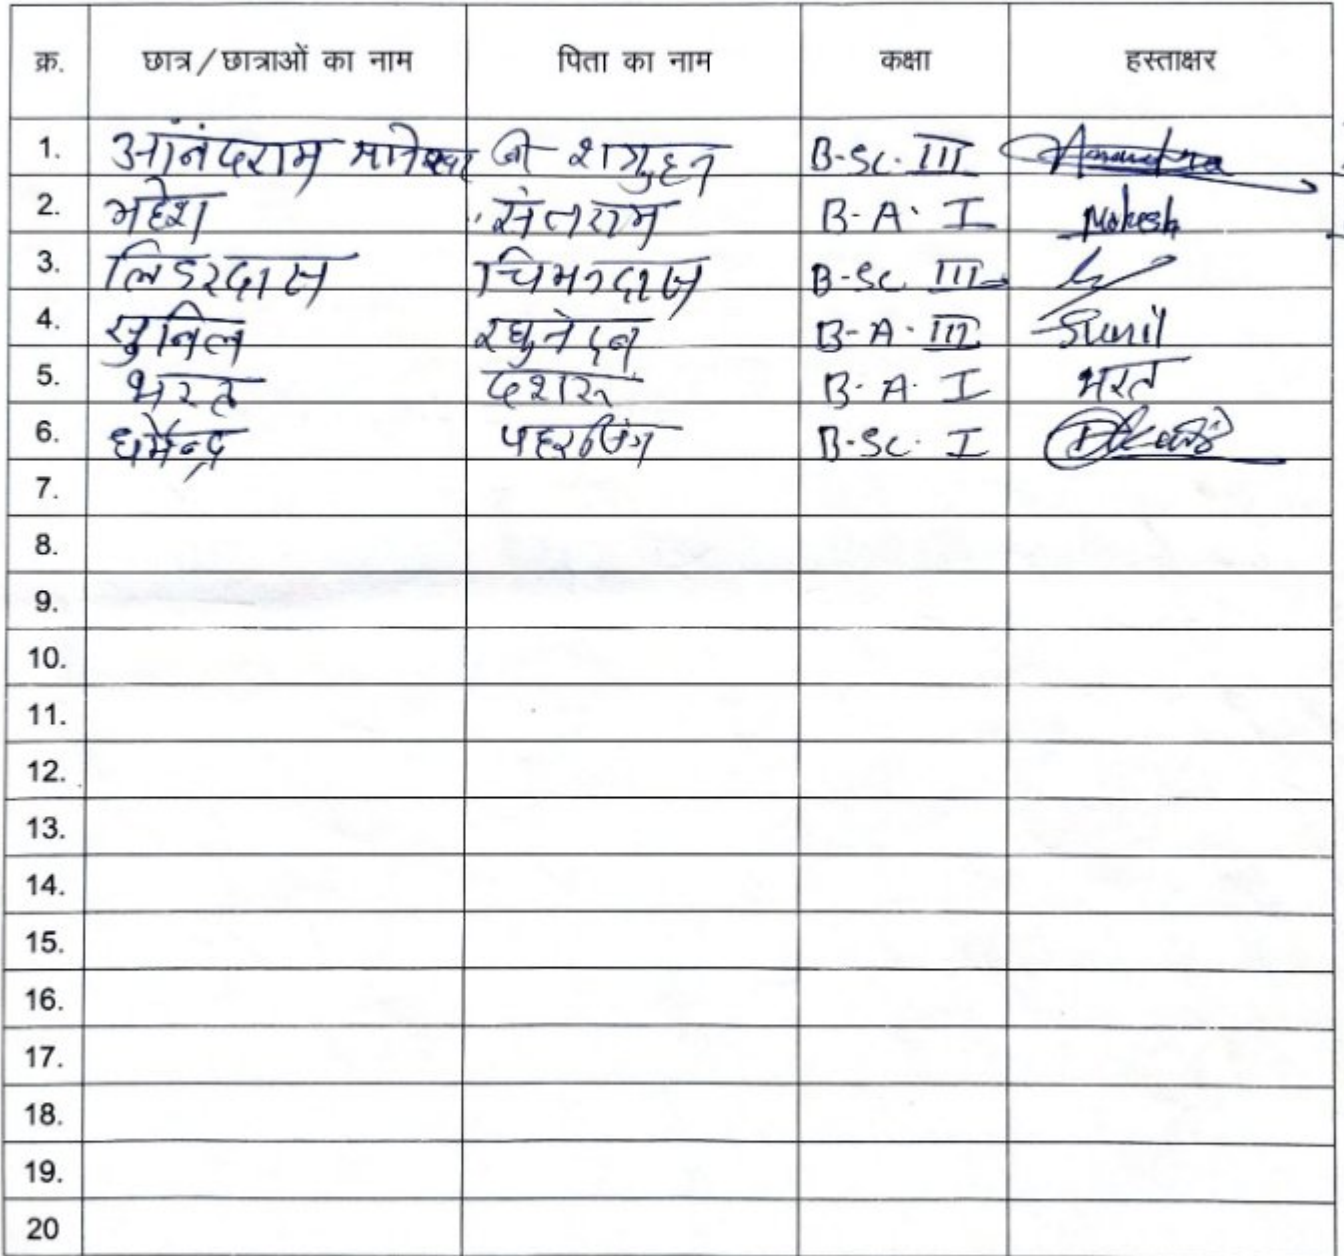 क्र. छात्र/छात्राओं का नाम पिता का नाम कक्षा हस्ताक्षर
1. आंनंदराम श्री शत्रुहन B-Sc. III
2. महेश संतराम B-A. I Mahesh
3. लिडरदास चिमनदास B-Sc. III
4. सुनिल B-A. III Sunil
5. भरत दशरू B-A. I भरत
6. धर्मेन्द्र B-Sc. I
7.
8.
9.
10.
11.
12.
13.
14.
15.
16.
17.
18.
19.
20